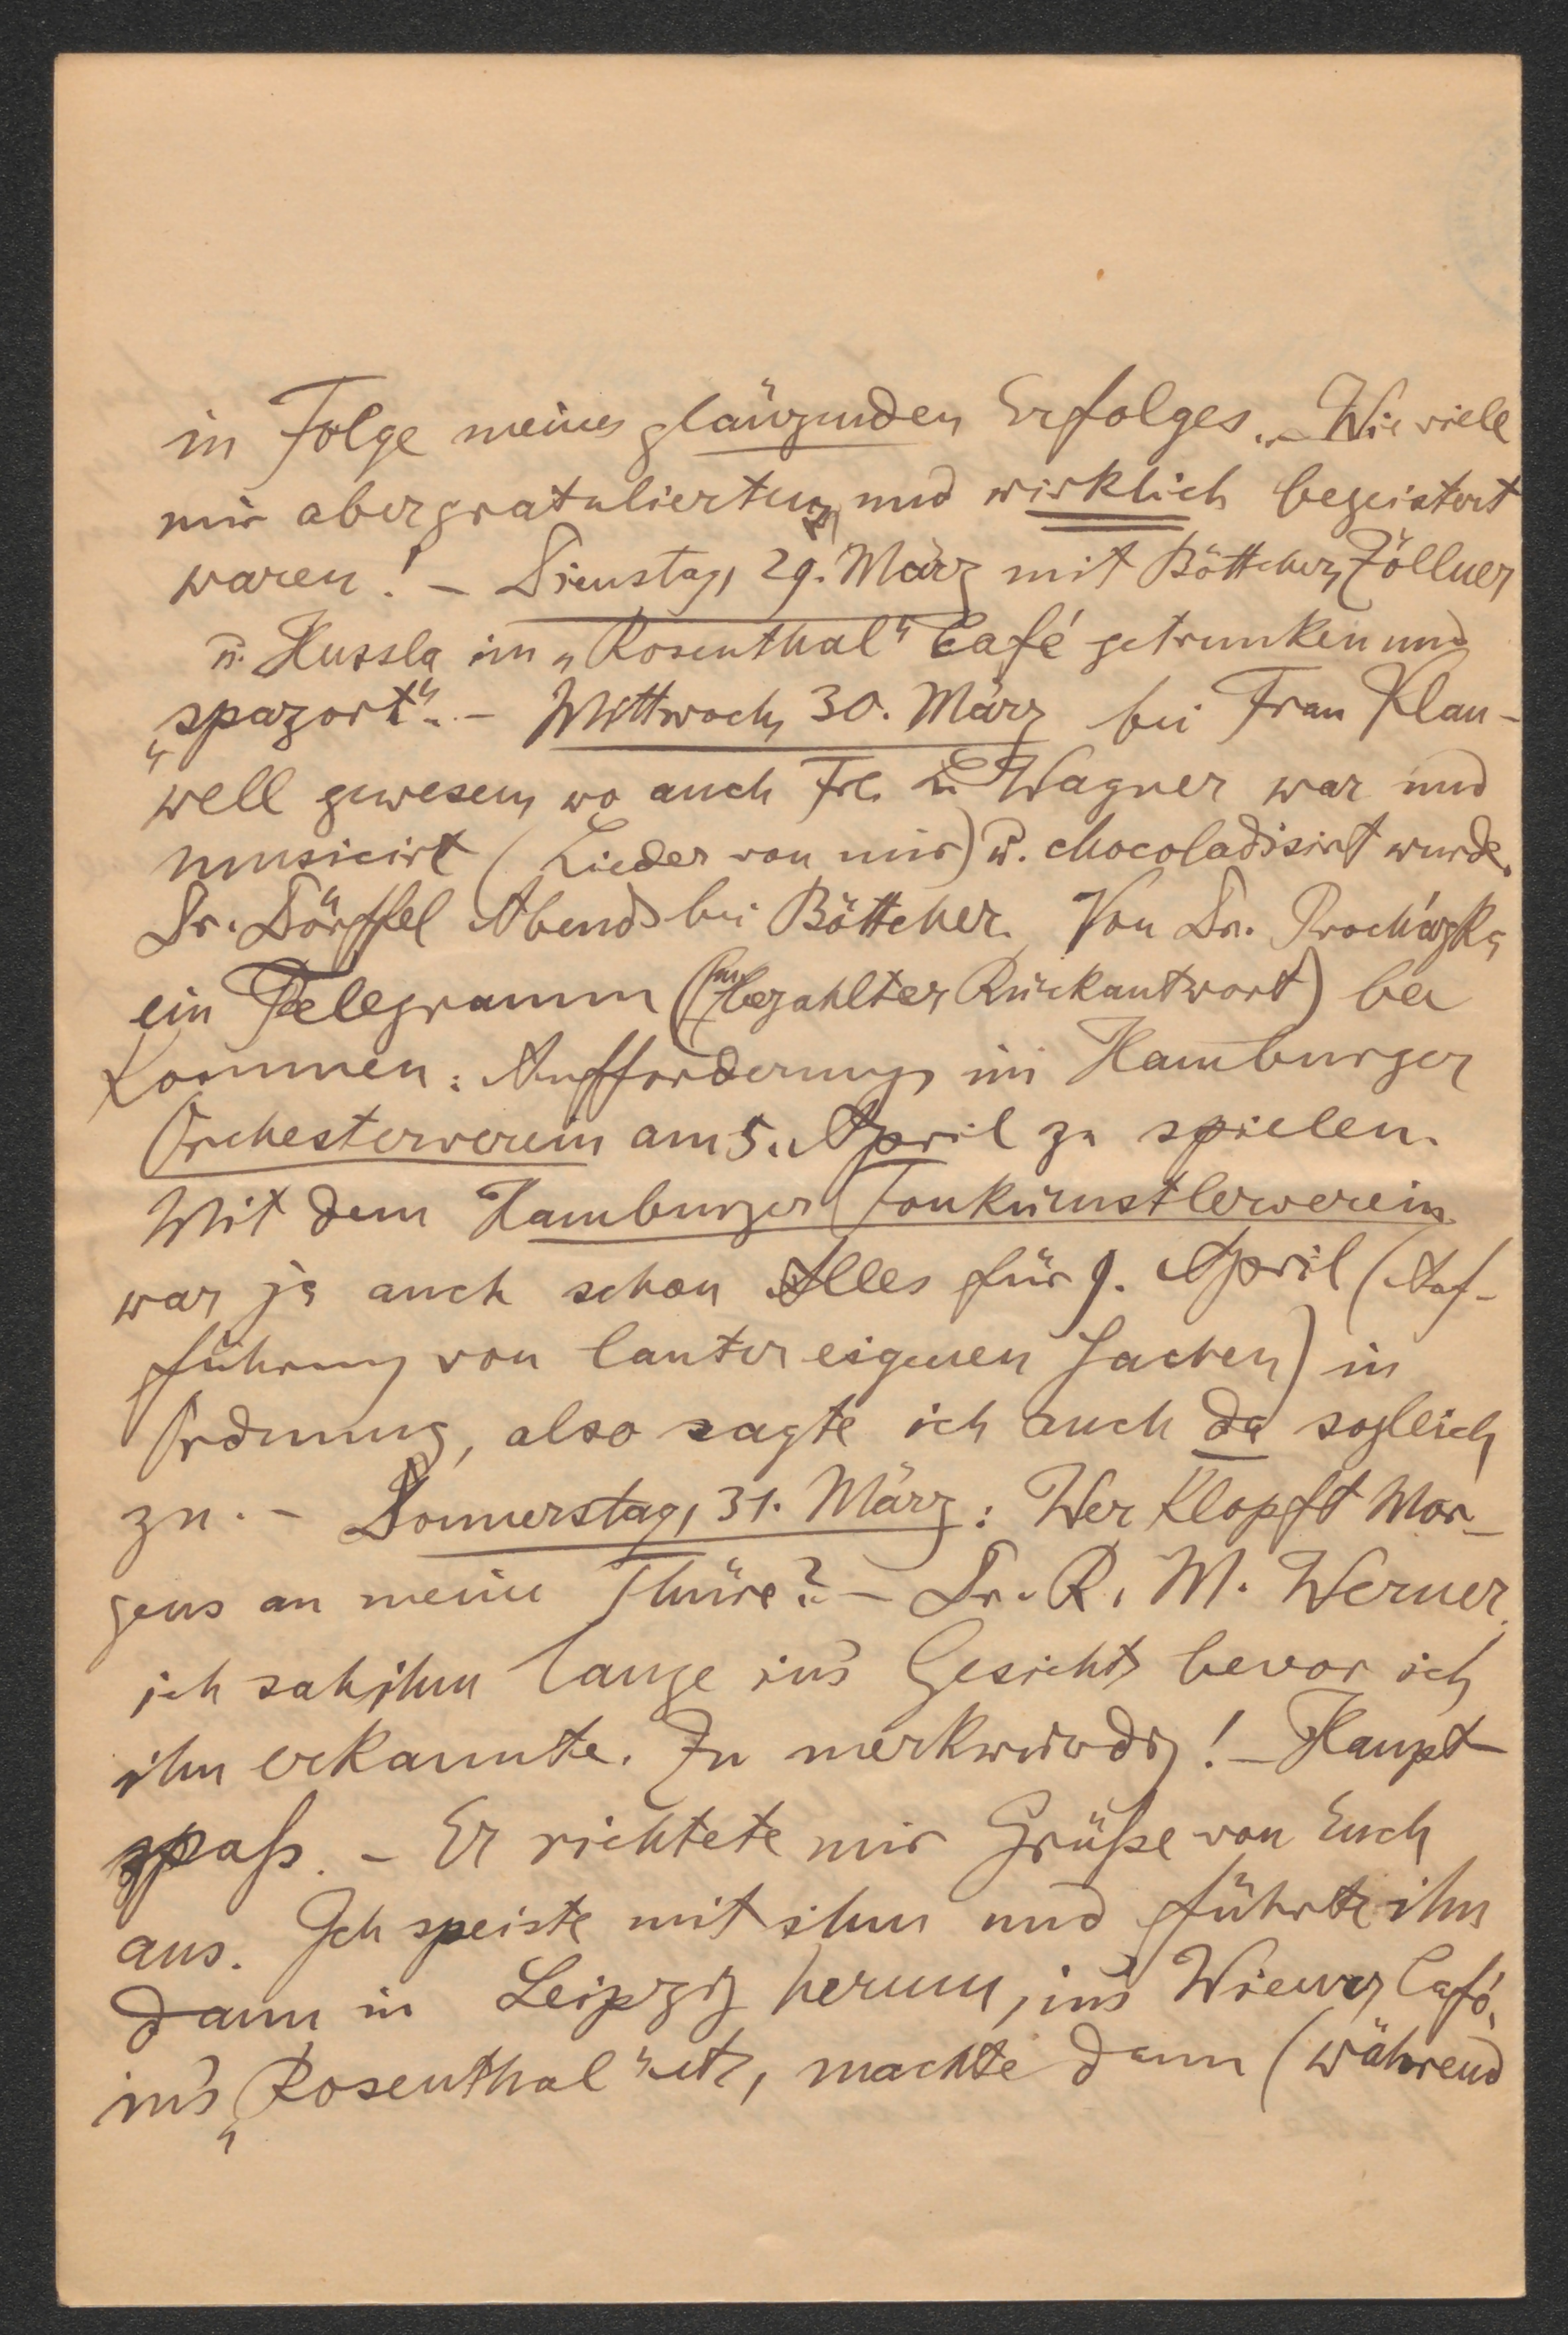 in Folge meines glänzenden Erfolges. – Wie viele
mir aber gratulierten, und wirklich begeistert
waren! – Dienstag, 29. März mit Böttcher, Zöllner
u. Hussla im „Rosenthal“ Café getrunken und
„spazort“. – Mittwoch, 30. März bei Frau Klau-
well gewesen, wo auch Frl. Wagner war und
musicirt (Lieder von mir) u. chocoladisirt wurde.
Dr. Dörffel Abends bei Böttcher. Von Dr. Procházka
ein Telegramm (mit bezahlter Rückantwort) be
kommen: Aufforderung, im Hamburger
Orchesterverein am 5. April zu spielen.
Mit dem Hamburger Tonkünstlerverein
war ja auch schon Alles für 9. April (Auf-
führung von lauter eigenen Sachen) in
Ordnung, also sagte ich auch da sogleich
zu. – Donnerstag, 31. März: Wer klopft Mor-
gens an meine Thüre? – Dr. R. M. Werner.
ich sah ihm lange in's Gesicht, bevor ich
ihn erkannte. Zu merkwürdig! – Haupt-
spaß. – Er richtete mir Grüße von Euch
aus. Ich speiste mit ihm und führte ihn
dann in Leipzig herum, in's Wiener Café,
in's „Rosenthal“ etc, machte dann (während